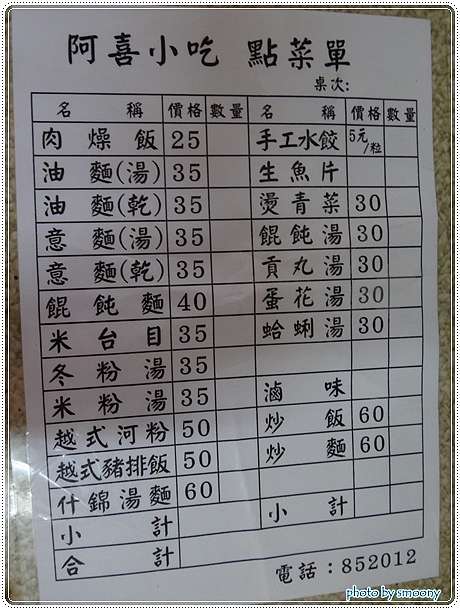 阿喜小吃 點菜單
桌次:
名稱 價格 數量 名稱 價格 數量
肉燥飯 25 手工水餃 5元/粒
油麵(湯) 35 生魚片
油麵(乾) 35 燙青菜 30
意麵(湯) 35 餛飩湯 30
意麵(乾) 35 貢丸湯 30
餛飩麵 40 蛋花湯 30
米台目 35 蛤蜊湯 30
冬粉湯 35
米粉湯 35 滷味
越式河粉 50 炒飯 60
越式豬排飯 50 炒麵 60
什錦湯麵 60
小計 小計
合計
電話：852012
photo by smoony